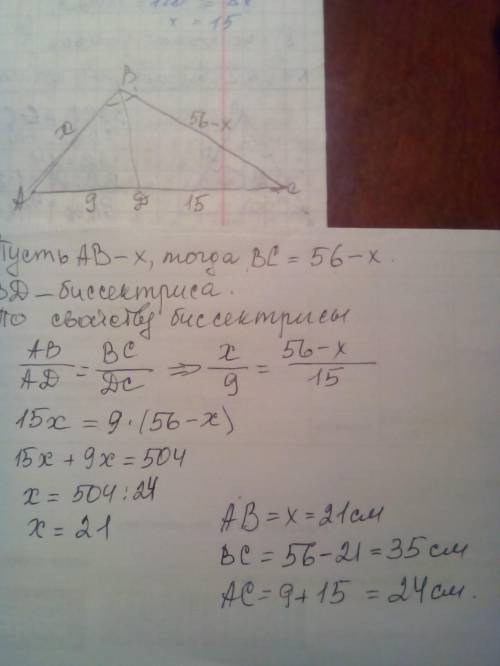 x = 15
B
x
56-x
A
9
D
15
C
Пусть AB - x, тогда BC = 56 - x.
BD - биссектриса.
По свойству биссектрисы
AB/AD = BC/DC => x/9 = 56-x/15
15x = 9·(56-x)
15x + 9x = 504
x = 504 : 24
x = 21
AB = x = 21 см
BC = 56 - 21 = 35 см
AC = 9 + 15 = 24 см.